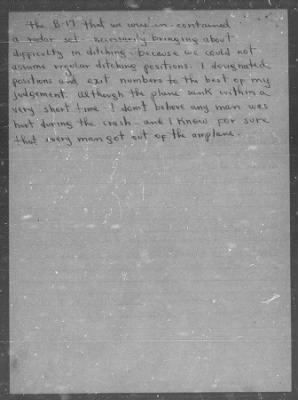 the B-17 that we were in contained
a radar set - necessarily bringing about
difficulty in ditching - because we could not
assume regular ditching positions. I designated
positions and exit numbers to the best of my
judgement. Although the plane sank within a
very short time I don't believe any man was
hurt during the crash - and I know for sure
that every man got out of the airplane.